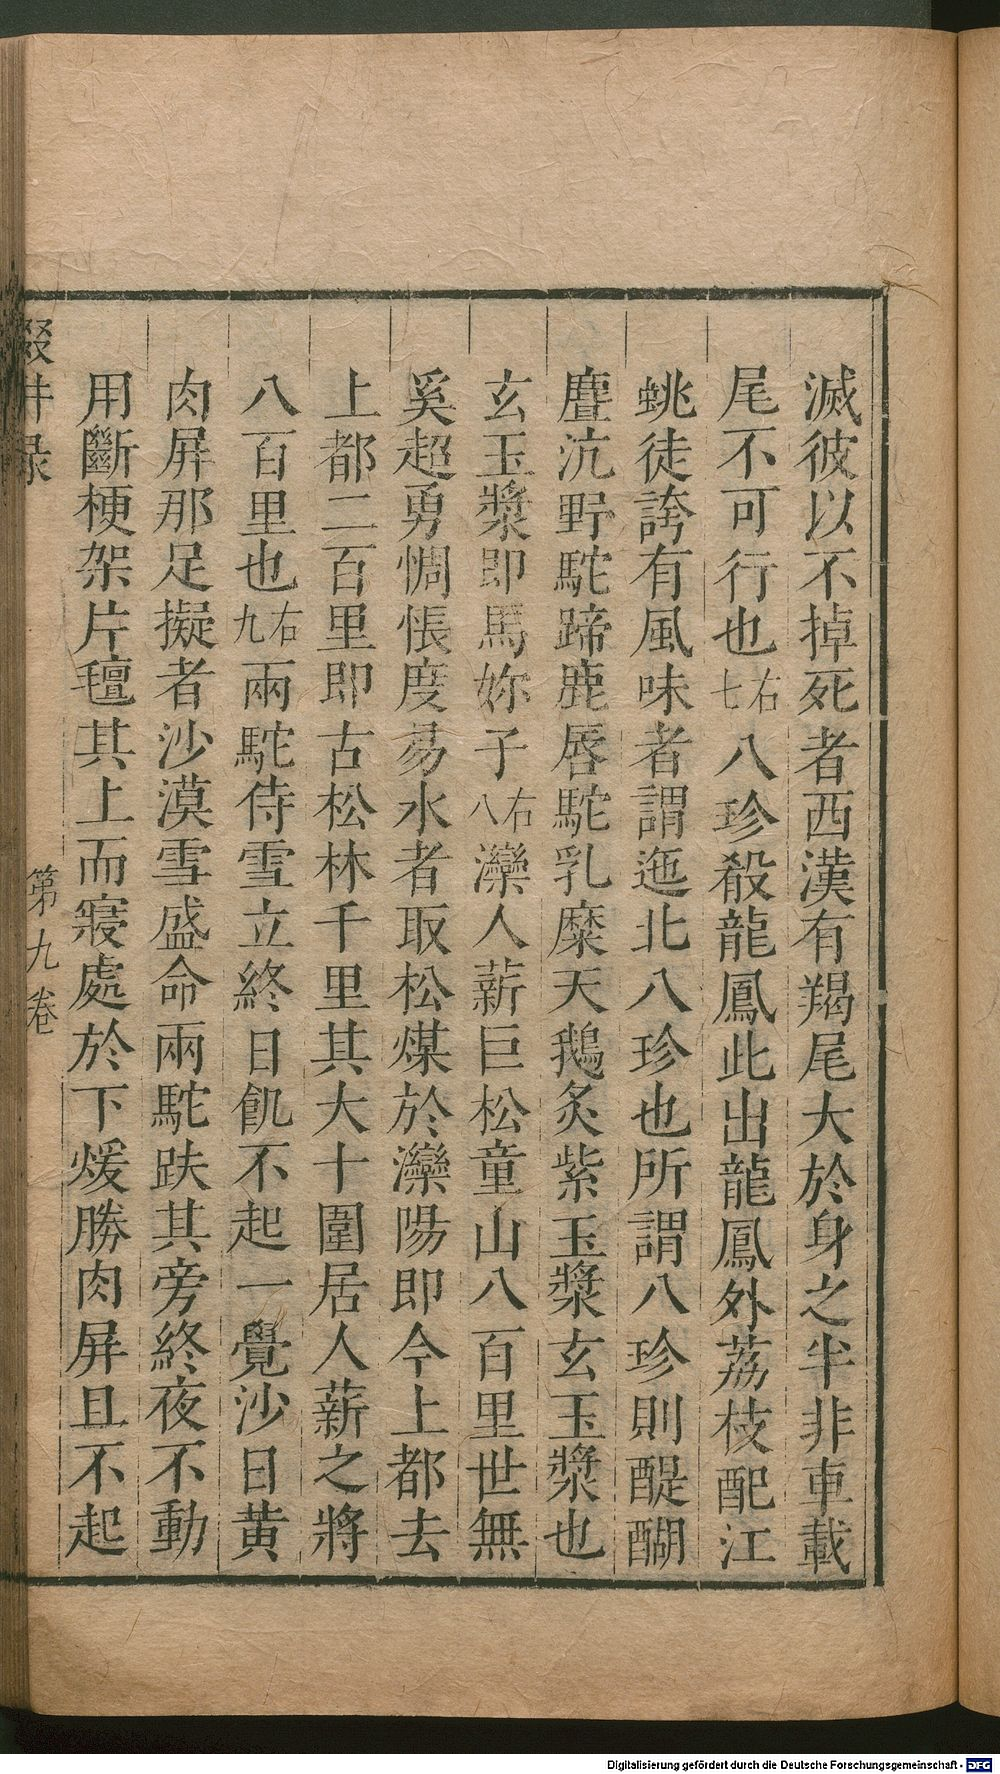 滅彼以不掉死者西漢有羯尾大於身之半非車載
尾不可行也右七八珍殽龍鳳此出龍鳳外荔枝配江
蛛徒誇有風味者謂迤北八珍也所謂八珍則醍醐
麆沆野駝蹄鹿唇駝乳糜天鵝炙紫玉漿玄玉漿也
玄玉漿即馬妳子右八灤人薪巨松童山八百里世無
奚超勇惆悵度易水者取松煤於灤陽即今上都去
上都二百里即古松林千里其大十圍居人薪之將
八百里也右九兩駝侍雪立終日飢不起一覺沙日黃
肉屏那足擬者沙漠雪盛命兩駝趺其旁終夜不動
用斷梗架片氊其上而寢處於下煖勝肉屏且不起
第九卷
Digitalisierung gefördert durch die Deutsche Forschungsgemeinschaft - DFG